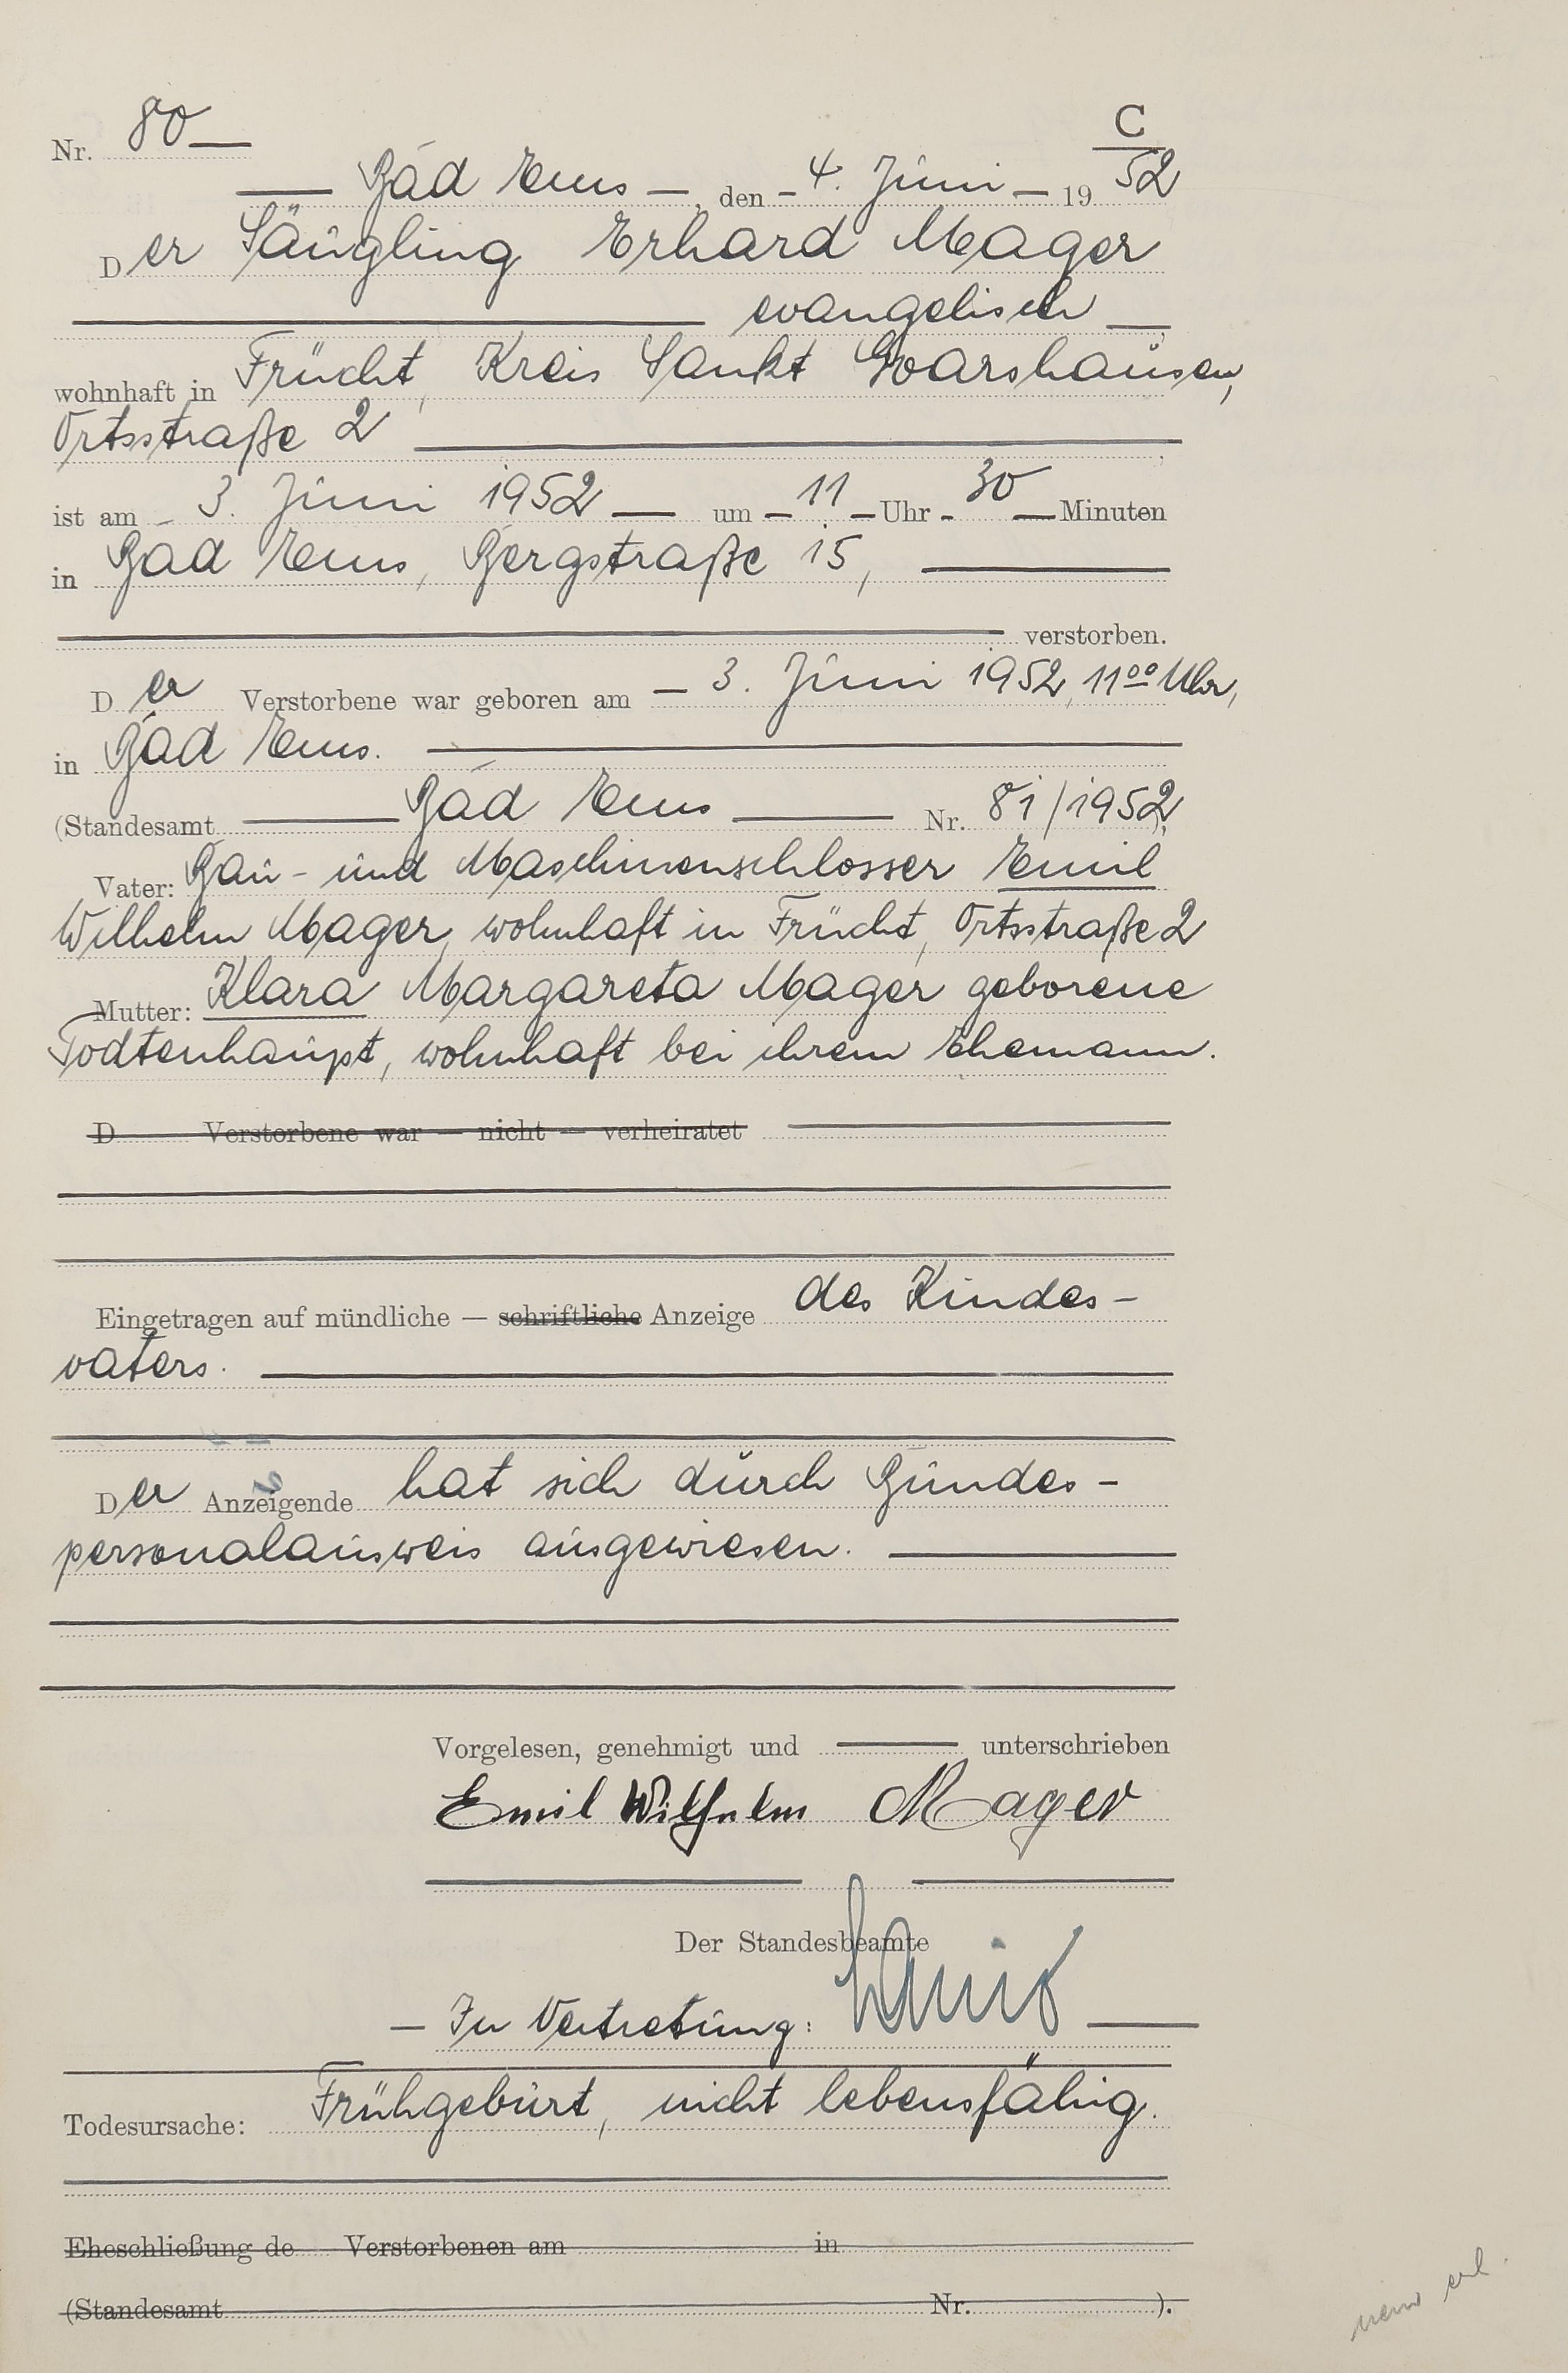 C
Nr. 80
Bad Ems, den 4. Juni 1952
Der Säugling Erhard Mager
evangelisch
wohnhaft in Frücht, Kreis Sankt Goarshausen,
Ortsstraße 2
ist am 3. Juni 1952 um 11 Uhr 30 Minuten
in Bad Ems, Bergstraße 15,
verstorben.
Der Verstorbene war geboren am 3. Juni 1952, 11⁰⁰ Uhr,
in Bad Ems.
(Standesamt Bad Ems Nr. 81/1952)
Vater: Bau- und Maschinenschlosser Emil
Wilhelm Mager, wohnhaft in Frücht, Ortsstraße 2
Mutter: Klara Margareta Mager geborene
Todtenhaupt, wohnhaft bei ihrem Ehemann.
D Verstorbene war — nicht — verheiratet
Eingetragen auf mündliche — schriftliche Anzeige des Kindes-
vaters.
Der Anzeigende hat sich durch Bundes-
personalausweis ausgewiesen.
Vorgelesen, genehmigt und unterschrieben
Emil Wilhelm Mager
Der Standesbeamte
In Vertretung:
Todesursache: Frühgeburt, nicht lebensfähig.
Eheschließung de Verstorbenen am in
(Standesamt Nr. ).